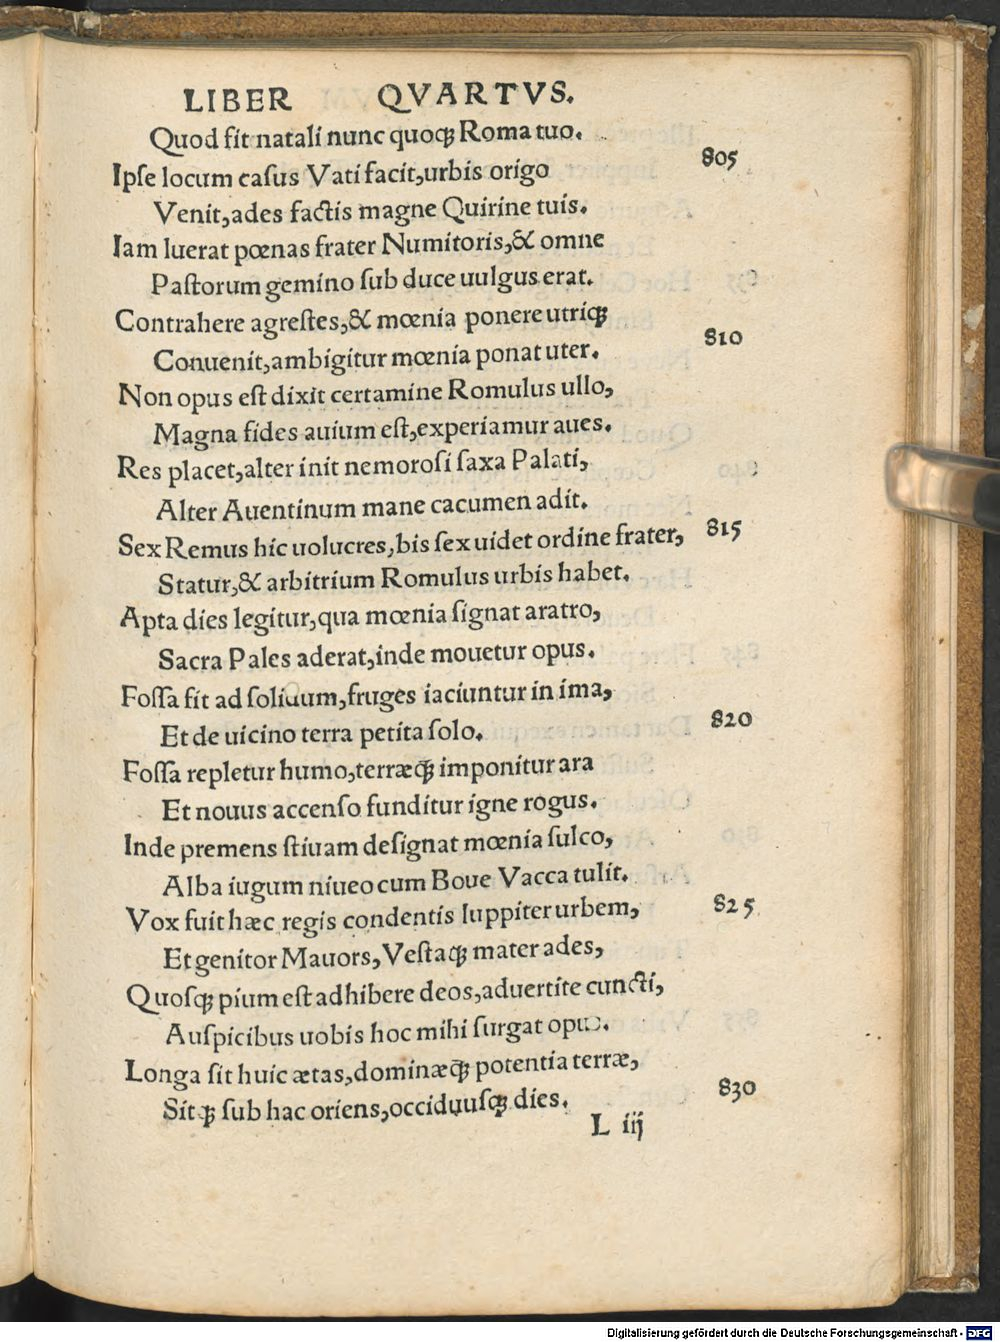 LIBER QVARTVS.
Quod fit natali nunc quoqꝫ Roma tuo.
805
Ipſe locum caſus Vati facit,urbis origo
Venit,ades factis magne Quirine tuis.
Iam luerat pœnas frater Numitoris,& omne
Paſtorum gemino ſub duce uulgus erat.
Contrahere agreſtes,& mœnia ponere utriqꝫ
810
Conuenit,ambigitur mœnia ponat uter.
Non opus eſt dixit certamine Romulus ullo,
Magna fides auium eſt,experiamur aues.
Res placet,alter init nemoroſi ſaxa Palati,
Alter Auentinum mane cacumen adit.
Sex Remus hic uolucres,bis ſex uidet ordine frater, 815
Statur,& arbitrium Romulus urbis habet.
Apta dies legitur,qua mœnia ſignat aratro,
Sacra Pales aderat,inde mouetur opus.
Foſſa fit ad ſolidum,fruges iaciuntur in ima,
820
Et de uicino terra petita ſolo.
Foſſa repletur humo,terræqꝫ imponitur ara
Et nouus accenſo funditur igne rogus.
Inde premens ſtiuam deſignat mœnia ſulco,
Alba iugum niueo cum Boue Vacca tulit.
Vox fuit hæc regis condentis Iuppiter urbem, 825
Et genitor Mauors,Veſtaqꝫ mater ades,
Quoſqꝫ pium eſt adhibere deos,aduertite cuncti,
Auſpicibus uobis hoc mihi ſurgat opus.
Longa ſit huic ætas,dominæqꝫ potentia terræ,
830
Sitqꝫ ſub hac oriens,occiduuſqꝫ dies.
L iij
Digitalisierung gefördert durch die Deutsche Forschungsgemeinschaft - DFG